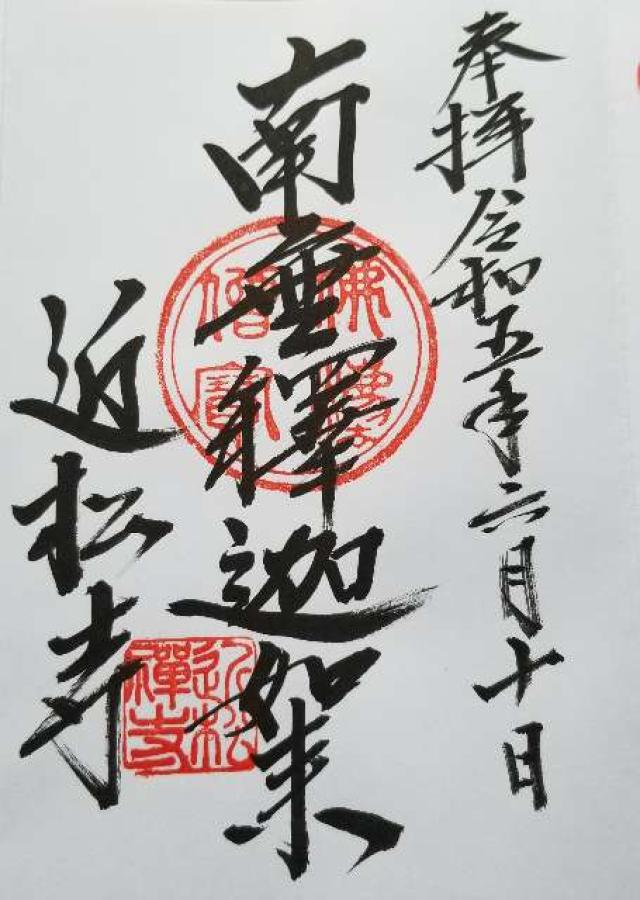 奉拝 令和五年六月十日
南無釋迦如来
近松寺
佛法
僧寳
近松
禅寺